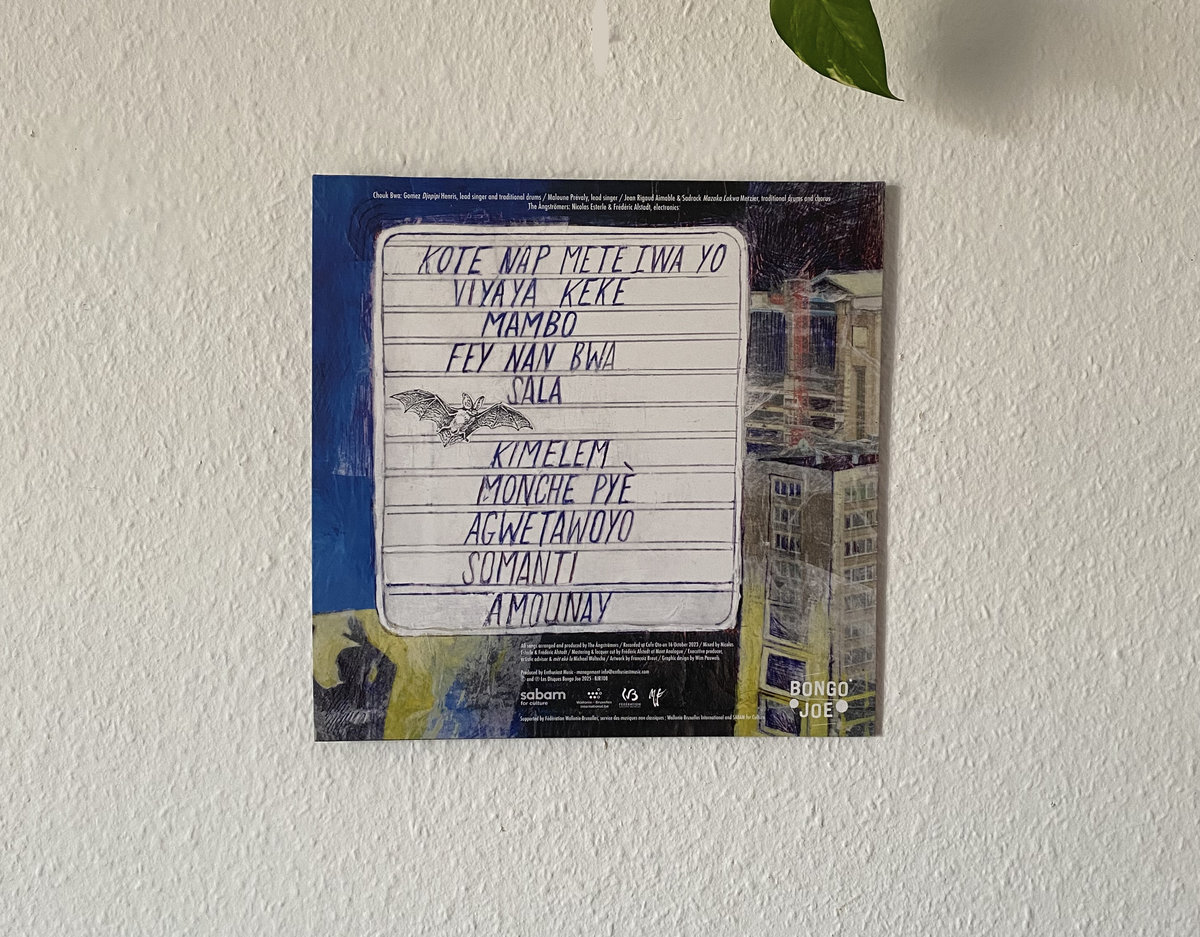 Chouk Bwa: Gomez Djopipi Henris, lead singer and traditional drums / Maloune Prévaly, lead singer / Jean Rigaud Aimable & Sadrack Mazaka Lakwa Merzier, traditional drums and chorus
The Ångströmers: Nicolas Esterle & Frédéric Alstadt, electronics
KOTE NAP METE IWA YO
VIYAYA KEKE
MAMBO
FEY NAN BWA
SALA
KIMELEM
MONCHE PYÈ
AGWETAWOYO
SOMANTI
AMOUNAY
All songs arranged and produced by The Ångströmers / Recorded at Cafe Oto on 16 October 2023 / Mixed by Nicolas
Esterle & Frédéric Alstadt / Mastering & lacquer cut by Frédéric Alstadt at Mont Analogue / Executive producer,
artistic advisor & mét oké la Michael Wolteche / Artwork by François Rivat / Graphic design by Wim Pauwels
Produced by Enthusiast Music - management info@enthusiastmusic.com
© and ℗ Les Disques Bongo Joe 2025 - BJR108
sabam
for culture
Wallonie - Bruxelles
International.be
FÉDÉRATION
BONGO
JOE
Supported by Fédération Wallonie-Bruxelles, service des musiques non classiques ; Wallonie Bruxelles International and SABAM for Culture